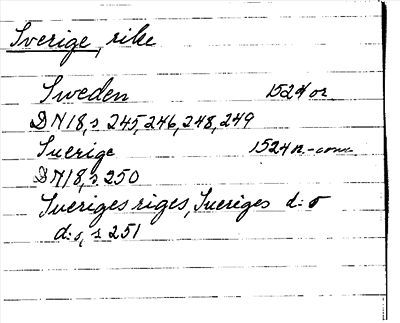 Sverige, rike
Sweden 1524 or
DN 18, s 245, 246, 248, 249
Suerige 1524 n.-
DN 18, s. 250
Sveriges riges, Sueriges d:o
d:o, s 251